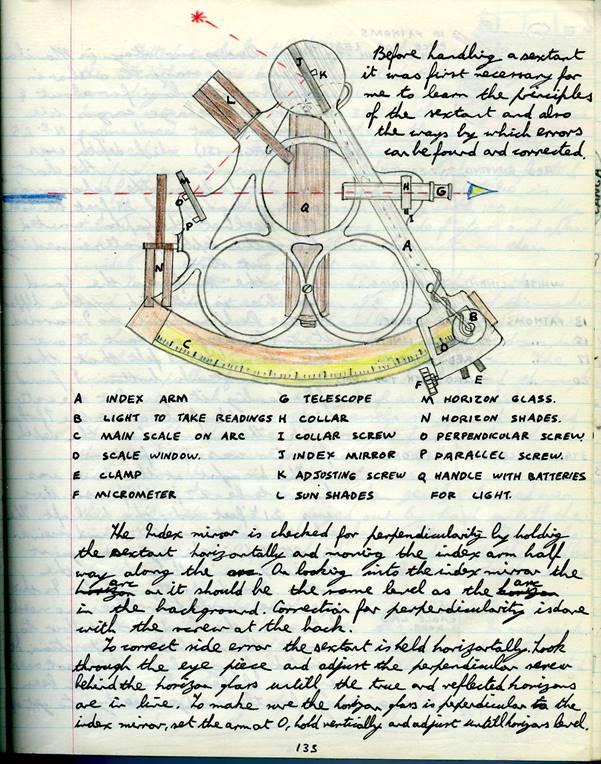 Before handling a sextant
it was first necessary for
me to learn the principles
of the sextant and also
the ways by which errors
can be found and corrected.
J
K
L
M
O
P
H
G
I
Q
A
N
B
C
D
E
F
A INDEX ARM
B LIGHT TO TAKE READINGS
C MAIN SCALE ON ARC
D SCALE WINDOW.
E CLAMP
F MICROMETER
G TELESCOPE
H COLLAR
I COLLAR SCREW
J INDEX MIRROR
K ADJUSTING SCREW
L SUN SHADES
M HORIZON GLASS.
N HORIZON SHADES.
O PERPENDICULAR SCREW.
P PARALLEL SCREW.
Q HANDLE WITH BATTERIES
FOR LIGHT.
The Index mirror is checked for perpendicularity by holding
the sextant horizontally and moving the index arm half
way along the arc. On looking into the index mirror the
horizon arc on it should be the same level as the horizon arc
in the background. Correction for perpendicularity is done
with the screw at the back.
To correct side error the sextant is held horizontally. Look
through the eye piece and adjust the perpendicular screw
behind the horizon glass untill the true and reflected horizons
are in line. To make sure the horizon glass is perpendicular to the
index mirror, set the arm at 0, hold vertically and adjust untill horizons level.
133